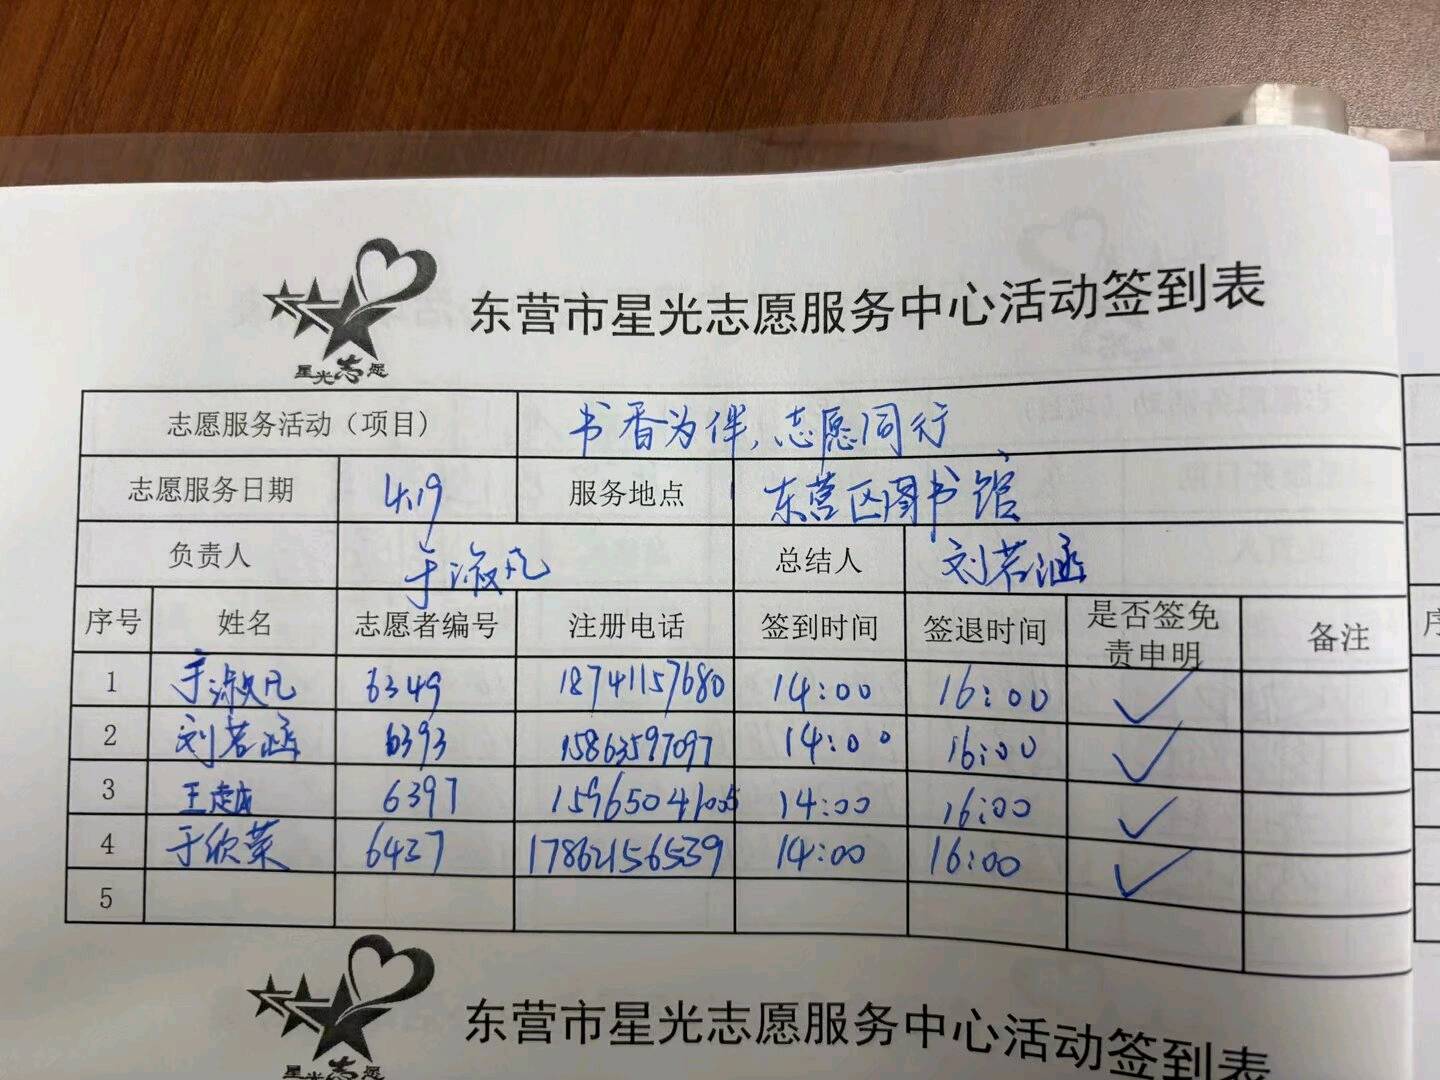 东营市星光志愿服务中心活动签到表
星光志愿
志愿服务活动（项目） 书香为伴,志愿同行
志愿服务日期 4.19 服务地点 东营区图书馆
负责人 于淑凡 总结人 刘若涵
序号 姓名 志愿者编号 注册电话 签到时间 签退时间 是否签免责申明 备注
1 于淑凡 6349 18741157680 14:00 16:00 ✓
2 刘若涵 6393 15863597097 14:00 16:00 ✓
3 王越 6397 15965041005 14:00 16:00 ✓
4 于欣荣 6437 17862156539 14:00 16:00 ✓
5
东营市星光志愿服务中心活动签到表
星光志愿